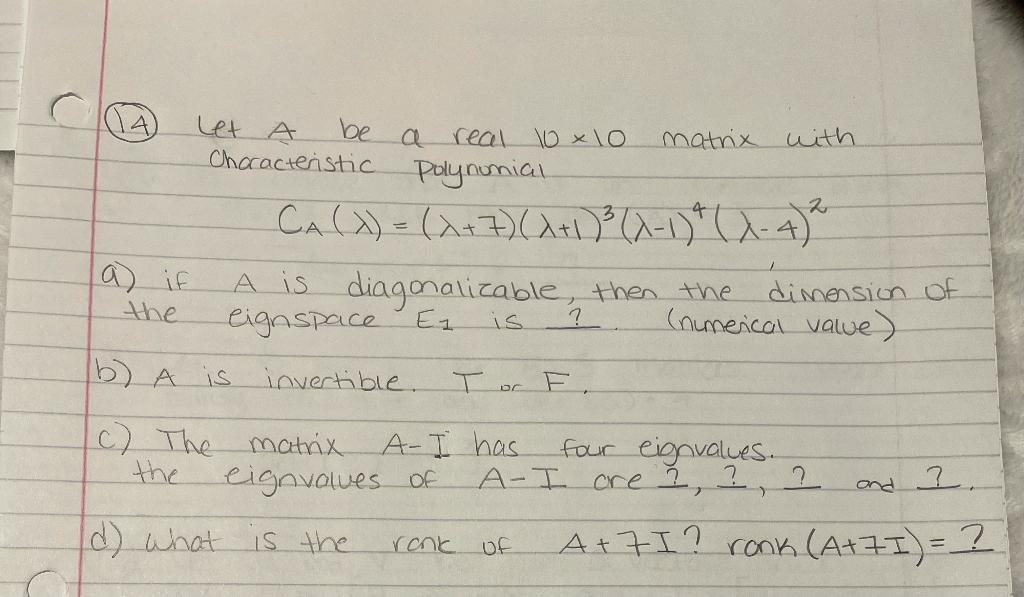 14 Let A be a real 10 × 10 matrix with
Characteristic polynomial
C_A(λ) = (λ+7)(λ+1)³(λ-1)⁴(λ-4)²
a) if A is diagonalizable, then the dimension of
the eignspace E₁ is ?. (numerical value)
b) A is invertible. T or F.
c) The matrix A-I has four eignvalues.
the eignvalues of A-I are ?, ?, ? and ?.
d) What is the rank of A+7I? rank(A+7I)= ?